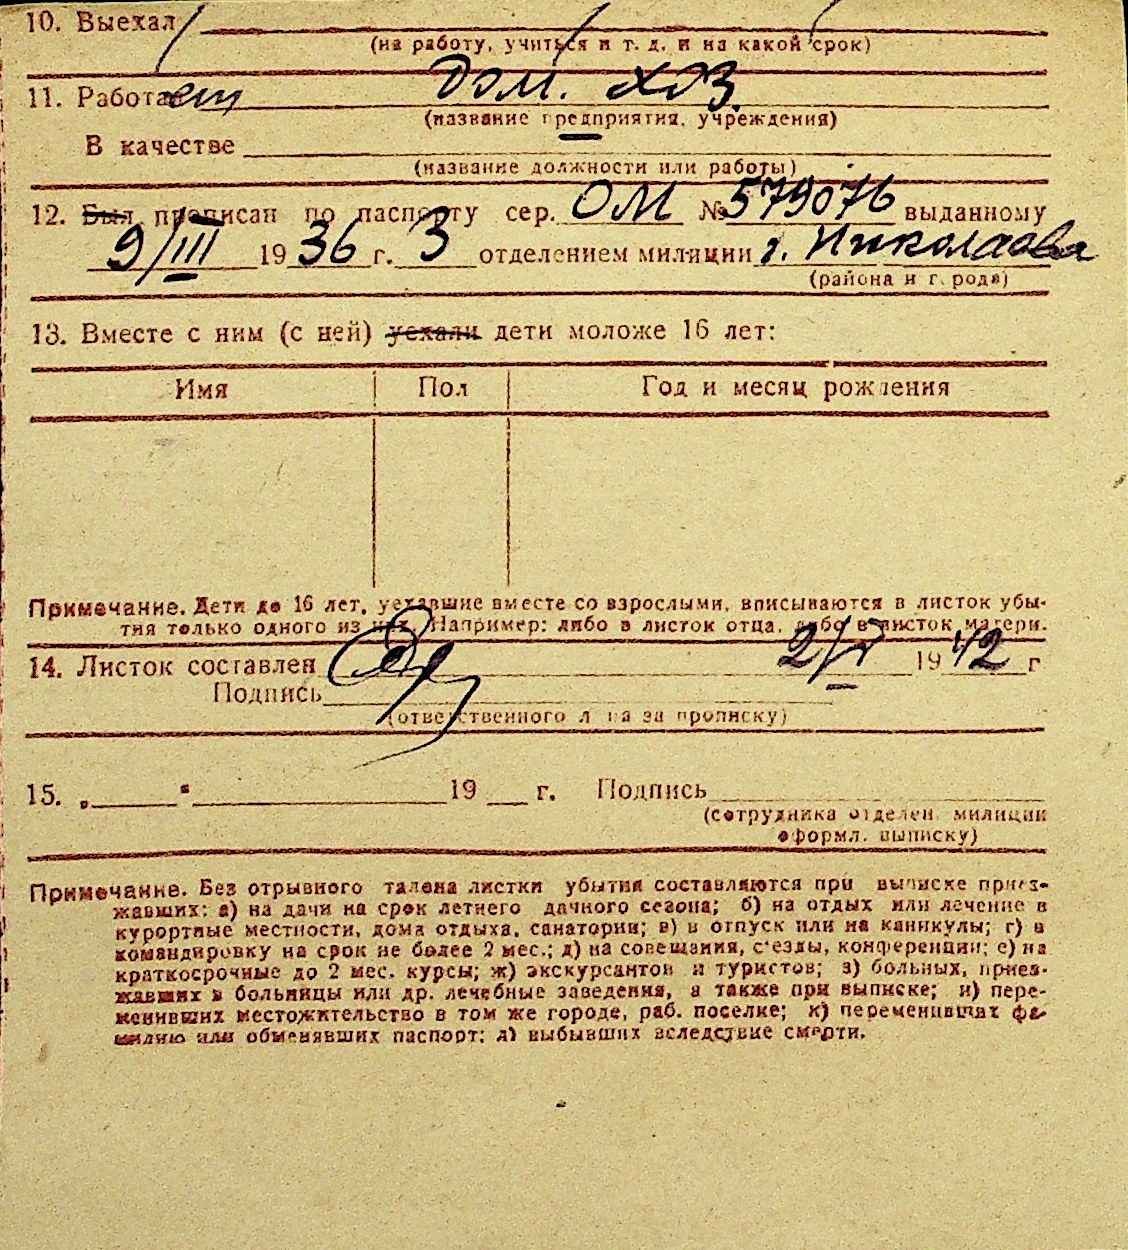 10. Выехал
(на работу, учиться и т. д. и на какой срок)
11. Работает Дом. хоз.
(название предприятия, учреждения)
В качестве
(название должности или работы)
12. Был прописан по паспорту сер. ОМ № 579076 выданному
9/III 1936 г. 3 отделением милиции г. Николаева
(района и города)
13. Вместе с ним (с ней) уехали дети моложе 16 лет:
Имя Пол Год и месяц рождения
Примечание. Дети до 16 лет, уехавшие вместе со взрослыми, вписываются в листок убы-
тия только одного из них. Например: либо в листок отца, либо в листок матери.
14. Листок составлен 1942 г
Подпись
(ответственного лица за прописку)
15. „ " 19 г. Подпись
(сотрудника отделен. милиции
оформл. выписку)
Примечание. Без отрывного талона листки убытия составляются при выписке приез-
жавших: а) на дачи на срок летнего дачного сезона; б) на отдых или лечение в
курортные местности, дома отдыха, санатории; в) в отпуск или на каникулы; г) в
командировку на срок не более 2 мес.; д) на совещания, с'езды, конференции; е) на
краткосрочные до 2 мес. курсы; ж) экскурсантов и туристов; з) больных, приез-
жавших в больницы или др. лечебные заведения, а также при выписке; и) пере-
менивших местожительство в том же городе, раб. поселке; к) переменивших фа-
милию или обменявших паспорт; л) выбывших вследствие смерти.